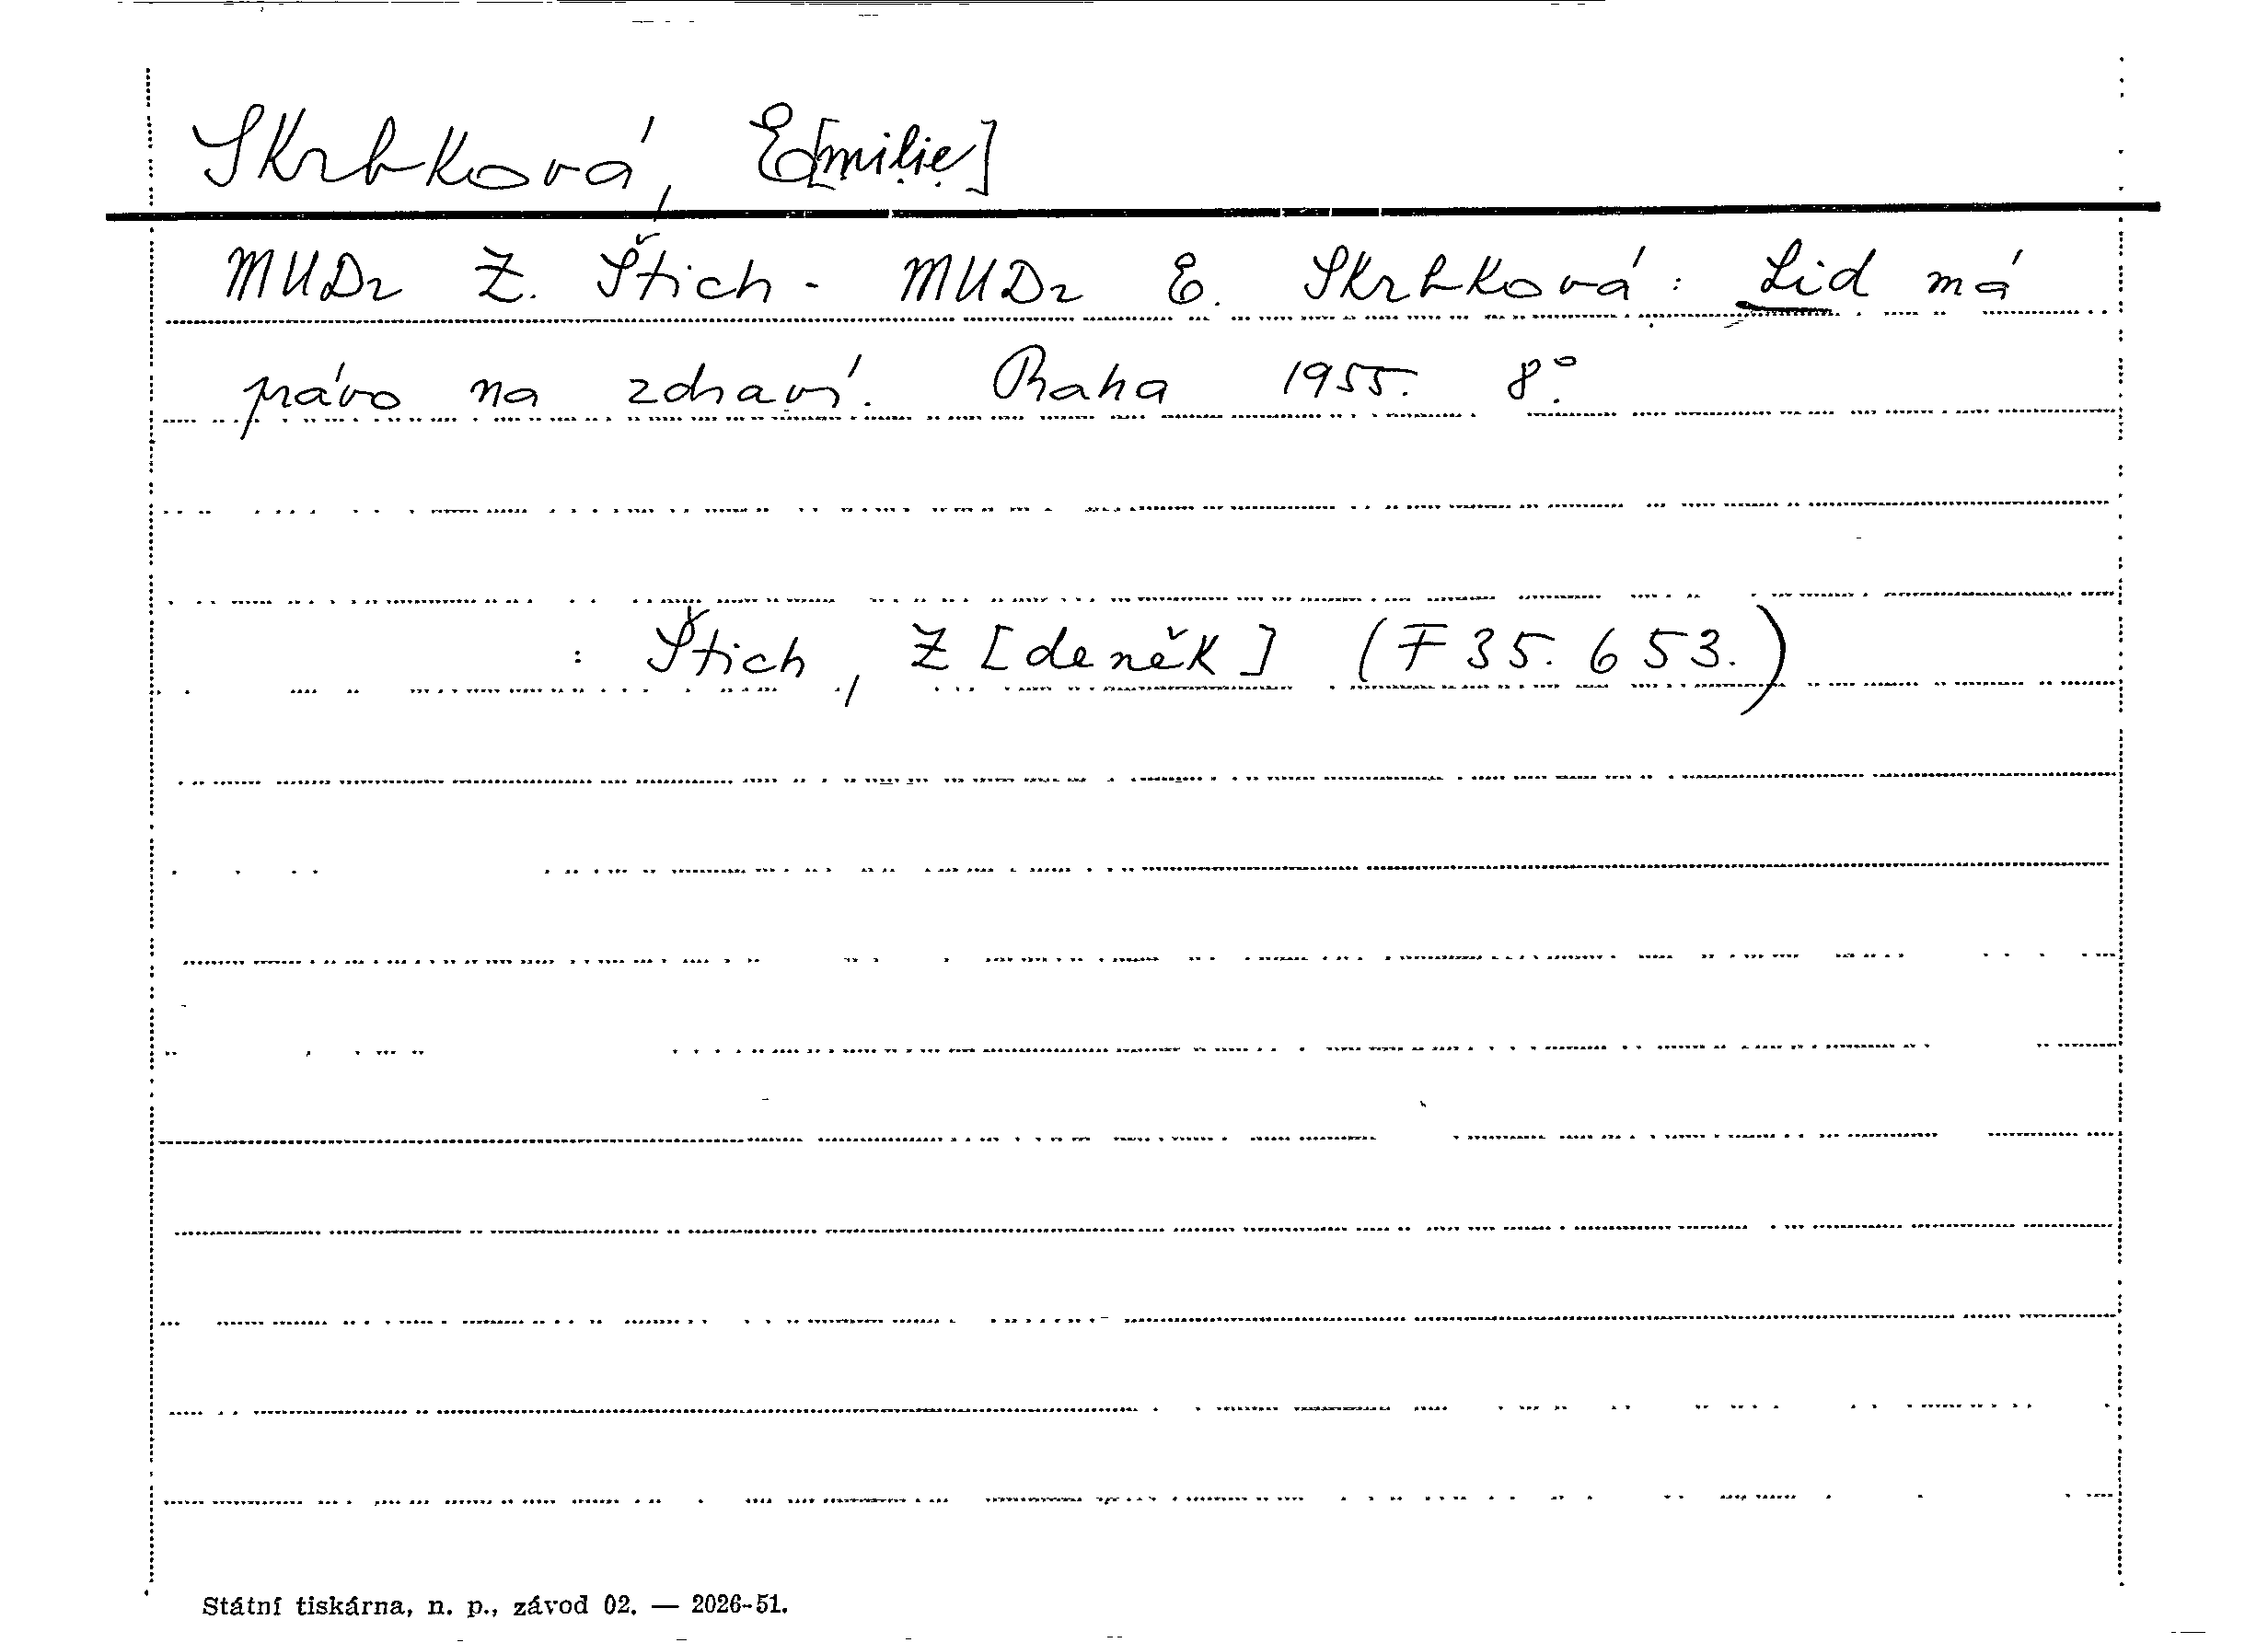 Skrbková, E[milie]
MUDr Z. Štich - MUDr E. Skrbková: Lid má
právo na zdraví. Praha 1955. 8°.
: Štich, Z[deněk] (F 35.653.)
Státní tiskárna, n. p., závod 02. — 2026-51.